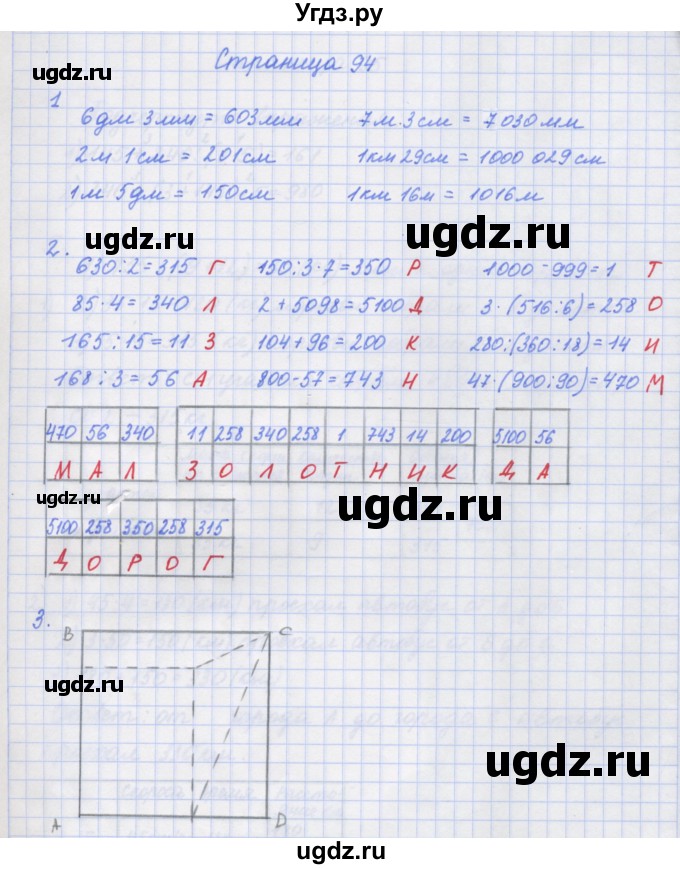 Угдз.ру
Страница 94
ugdz.ru
1
6дм 3мм = 603мм 7м 3см = 7030мм
2м 1см = 201см 1км 29см = 1000 029см
1м 5дм = 150см 1км 16м = 1016м
ugdz.ru ugdz.ru
2.
630:2=315 Г 150:3·7=350 Р 1000-999=1 Т
85·4=340 Л 2+5098=5100 Д 3·(516:6)=258 О
165:15=11 З 104+96=200 К 280:(360:18)=14 И
168:3=56 А 800-57=743 Н 47·(900:90)=470 М
470 56 340 11 258 340 258 1 743 14 200 5100 56
М А Л З О Л О Т Н И К Д А
ugdz.ru
5100 258 350 258 315
Д О Р О Г
3.
B C
ugdz.ru
ugdz.ru
A D
ugdz.ru